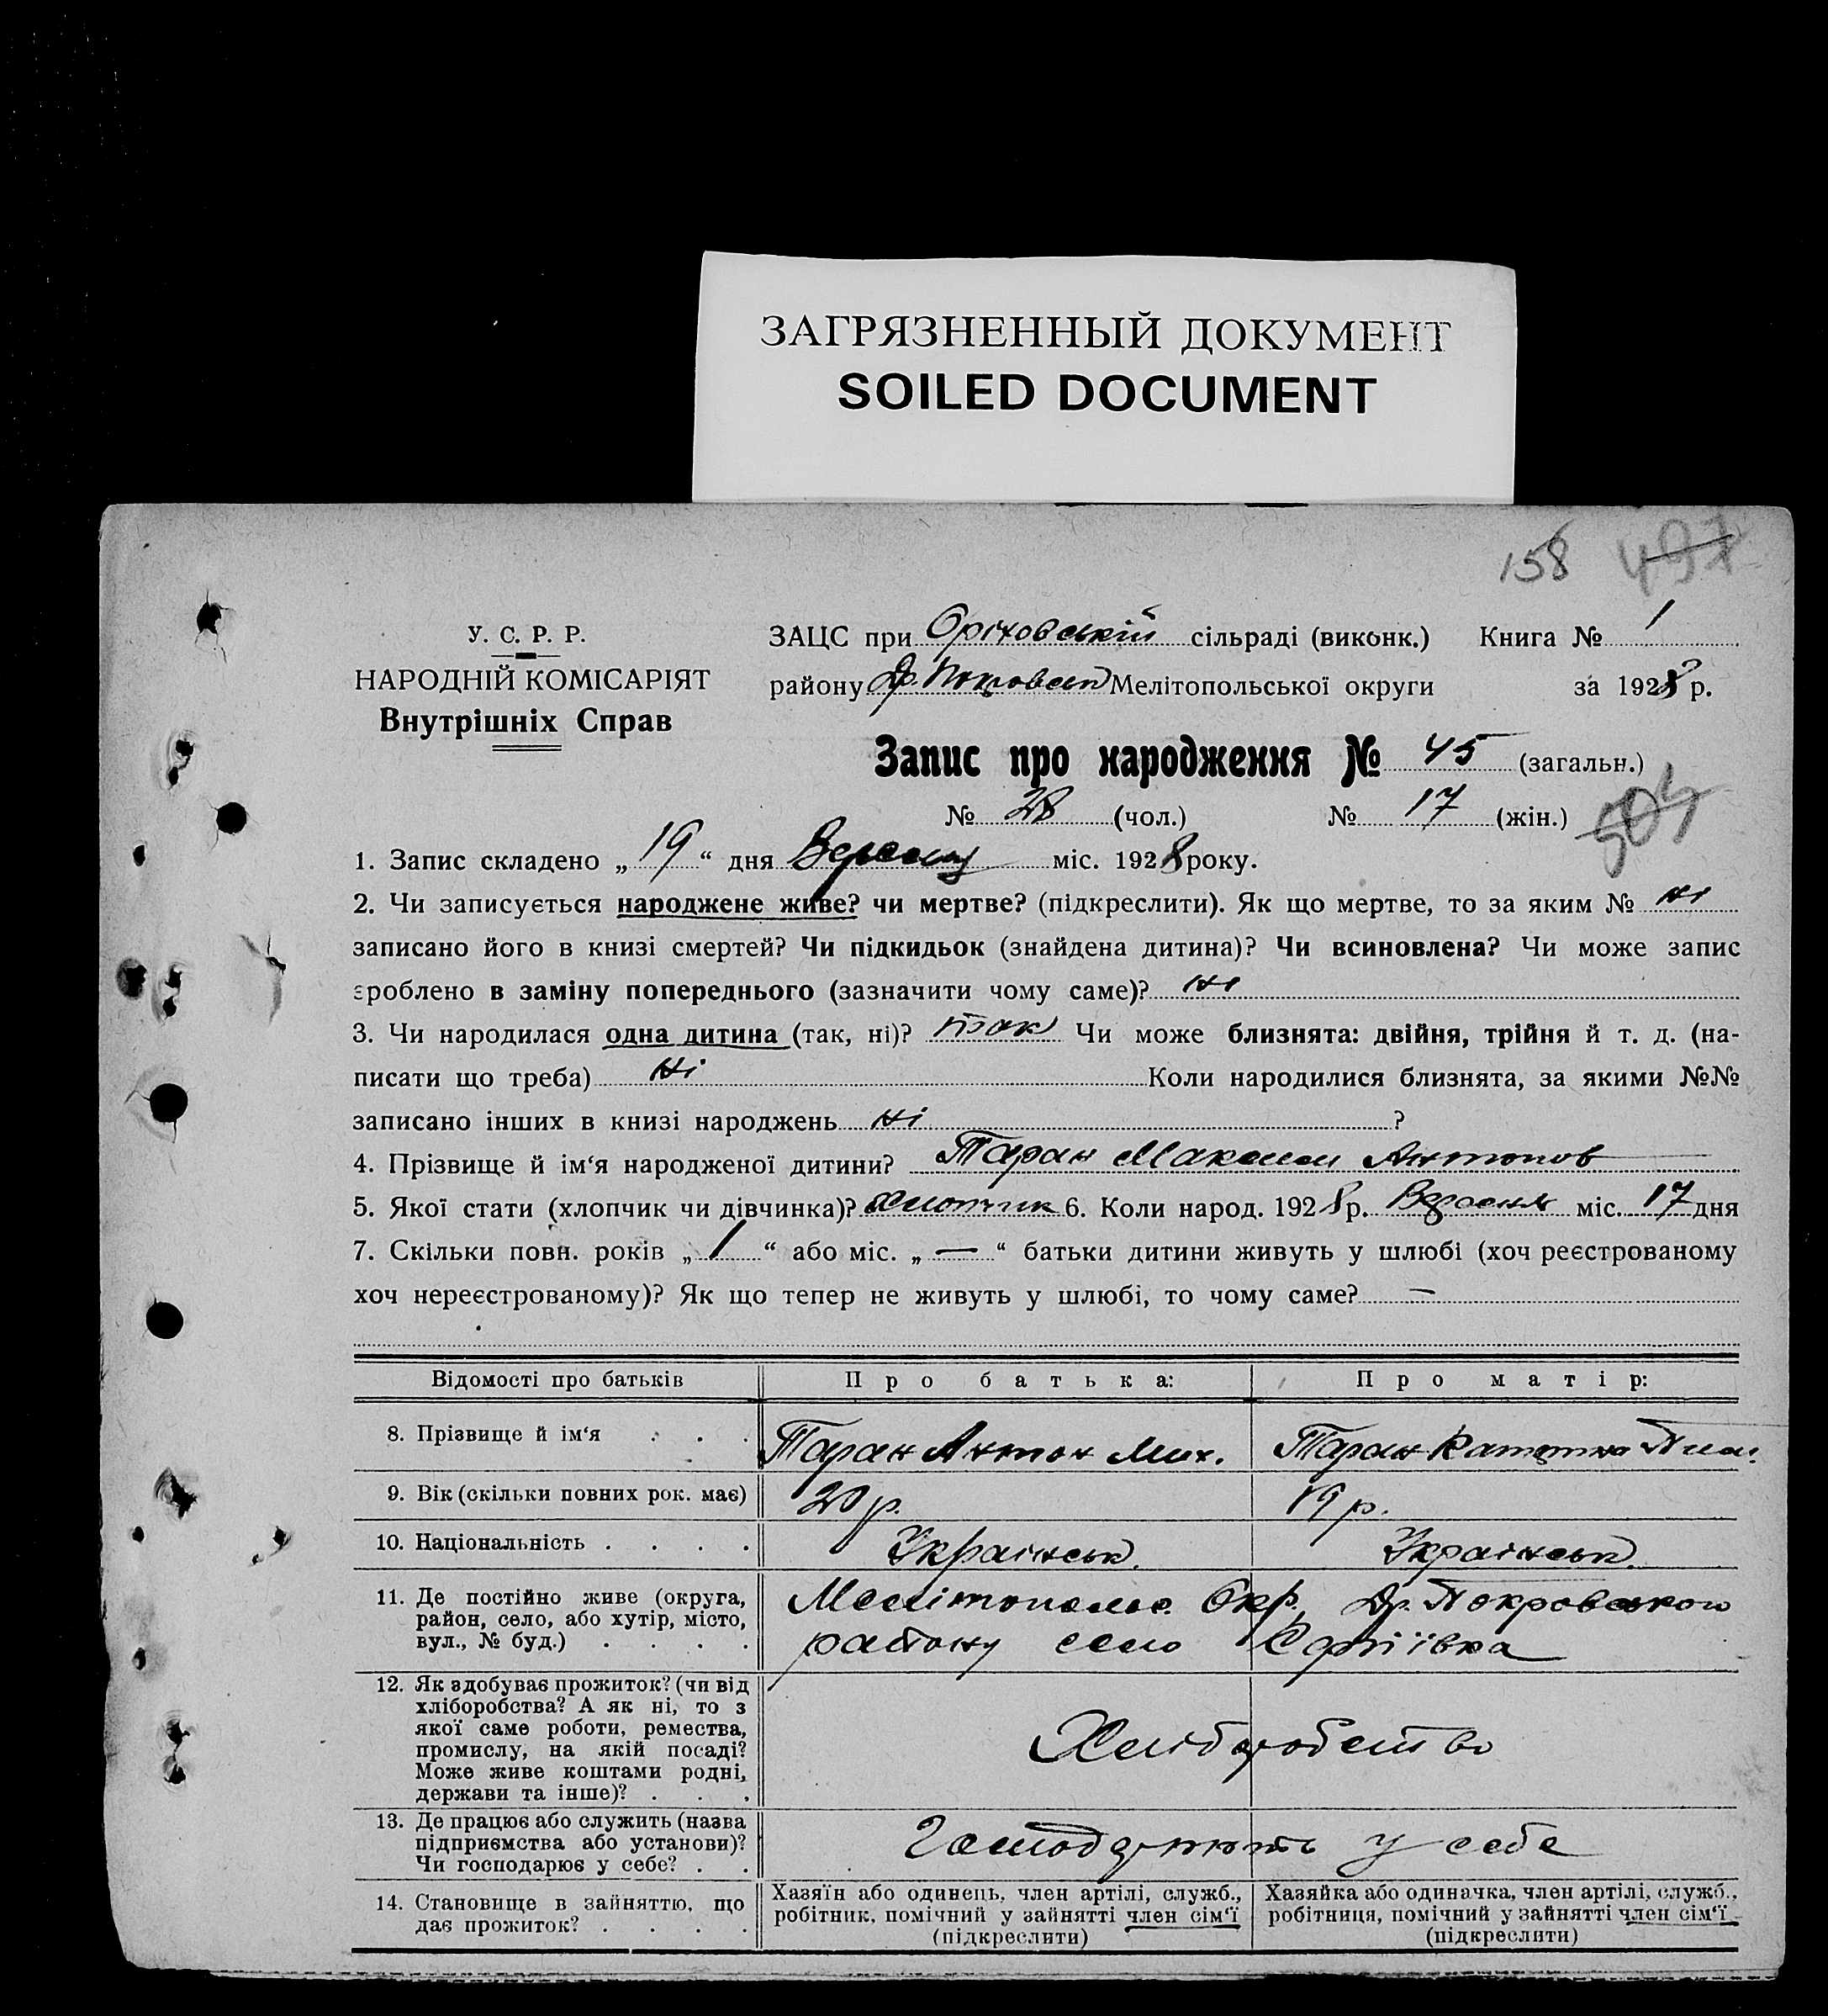 ЗАГРЯЗНЕННЫЙ ДОКУМЕНТ
SOILED DOCUMENT
158 497
У. С. Р. Р.
НАРОДНІЙ КОМІСАРІЯТ
Внутрішніх Справ
ЗАЦС при Оріховській сільраді (виконк.) Книга № 1
району Др. Покровськ Мелітопольської округи за 1928 р.
Запис про народження № 45 (загальн.)
№ 28 (чол.) № 17 (жін.)
504
1. Запис складено „ 19 “ дня Вересня міс. 1928 року.
2. Чи записується народжене живе? чи мертве? (підкреслити). Як що мертве, то за яким № ні
записано його в книзі смертей? Чи підкидьок (знайдена дитина)? Чи всиновлена? Чи може запис
зроблено в заміну попереднього (зазначити чому саме)? ні
3. Чи народилася одна дитина (так, ні)? так Чи може близнята: двійня, трійня й т. д. (на-
писати що треба) ні Коли народилися близнята, за якими №№
записано інших в книзі народжень ні ?
4. Прізвище й ім‘я народженої дитини? Таран Максим Антонов
5. Якої стати (хлопчик чи дівчинка)? Хлопчик 6. Коли народ. 1928 р. Вересня міс. 17 дня
7. Скільки повн. років „ 1 “ або міс. „ — “ батьки дитини живуть у шлюбі (хоч реєстрованому
хоч нереєстрованому)? Як що тепер не живуть у шлюбі, то чому саме? —
Відомості про батьків Про батька: Про матір:
8. Прізвище й ім‘я . . . Таран Антон Мих. Таран Катерина
9. Вік (скільки повних рок. має) 20 р. 19 р.
10. Національність . . . . Українськ. Українськ.
11. Де постійно живе (округа,
район, село, або хутір, місто,
вул., № буд.) . . . .
Мелітопольс. Окр. Др. Покровського
району село Сергіївка
12. Як здобуває прожиток? (чи від
хліборобства? А як ні, то з
якої саме роботи, ремества,
промислу, на якій посаді?
Може живе коштами родні,
держави та інше)? . . .
Хліборобство
13. Де працює або служить (назва
підприємства або установи)?
Чи господарює у себе? . .
Господарюють у себе
14. Становище в зайняттю, що
дає прожиток? . . . .
Хазяїн або одинець, член артілі, служб.,
робітник, помічний у зайнятті член сім‘ї
(підкреслити)
Хазяйка або одиначка, член артілі, служб.,
робітниця, помічний у зайнятті член сім‘ї
(підкреслити)